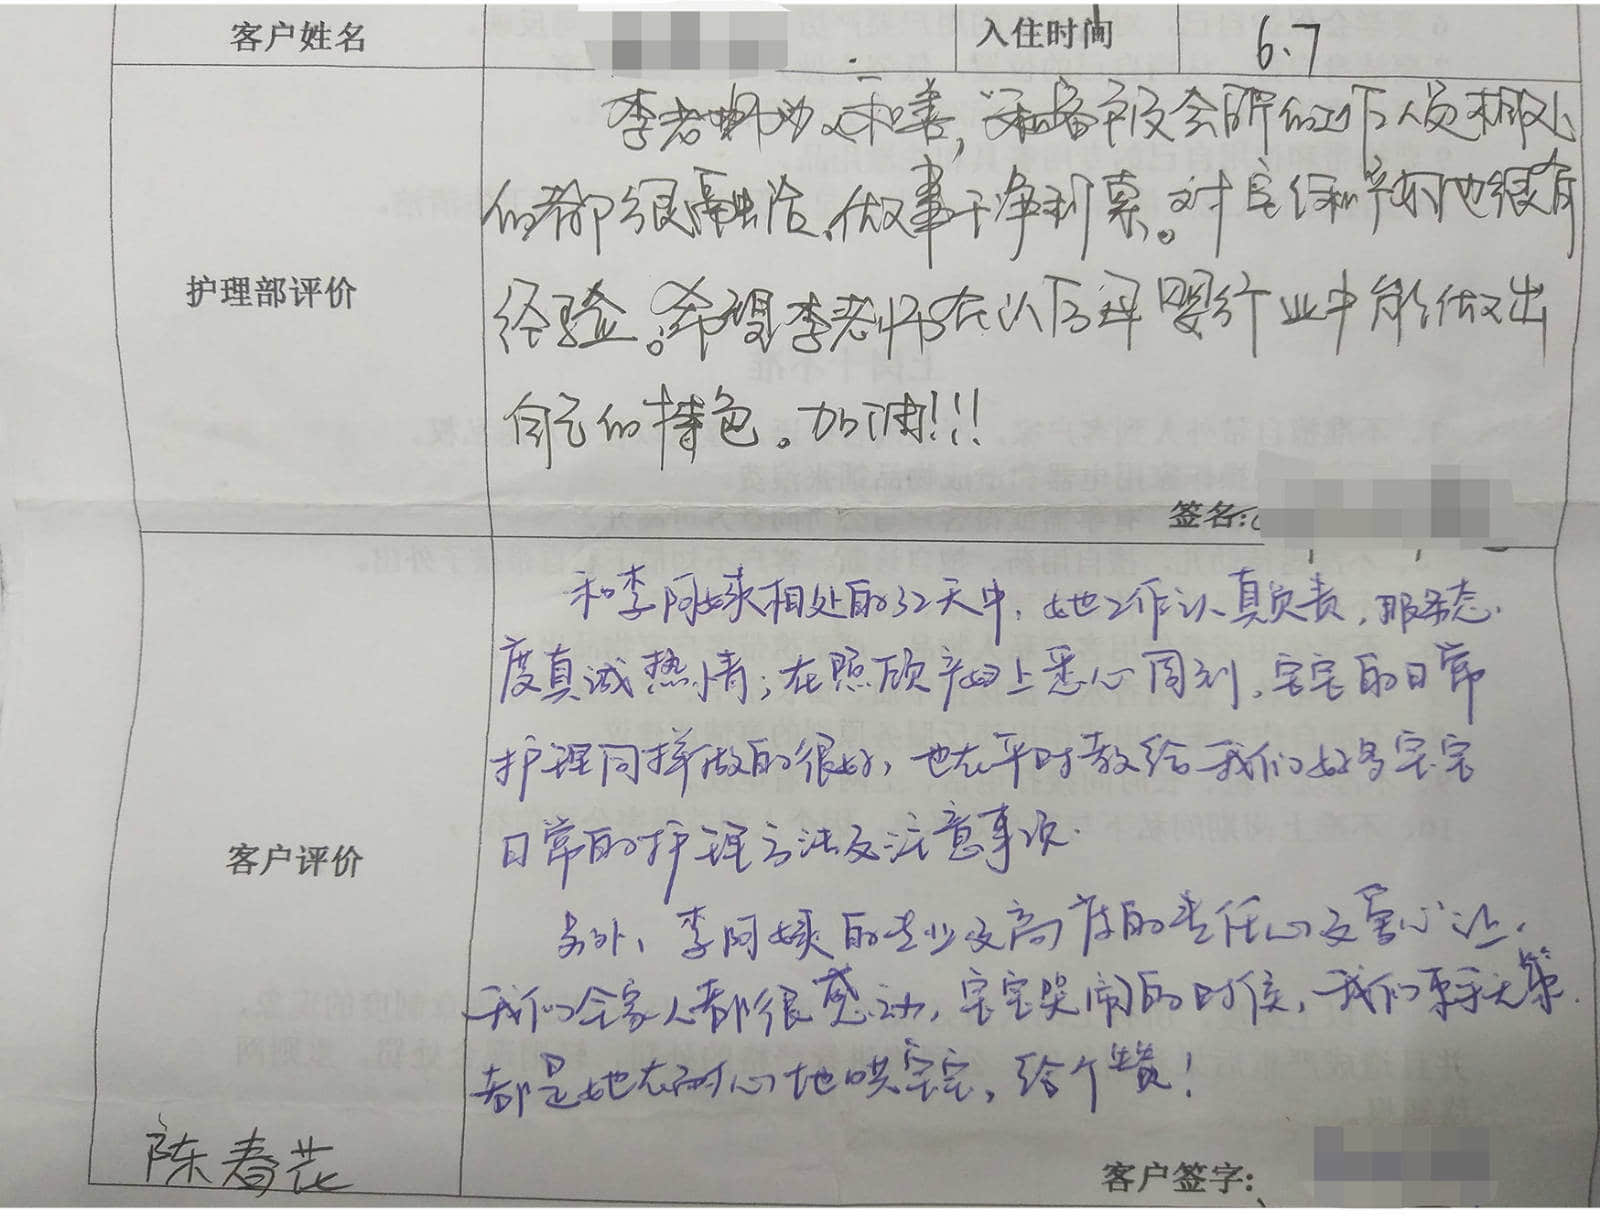 客户姓名 入住时间 6.7
李老师为人和善,和客户及会所的工作人员相处
的都很融洽,做事干净利索。对宝宝和产妇也很有
护理部评价
经验。希望李老师在以后母婴行业中能做出
自己的特色。加油!!!
签名:
和李阿姨相处的32天中,她工作认真负责,服务态
度真诚热情;在照顾产妇上悉心周到,宝宝的日常
护理同样做的很好,也在平时教给我们好多宝宝
日常的护理方法及注意事项.
客户评价
另外,李阿姨的专业及高度的责任心及爱心让
我们全家人都很感动,宝宝哭闹的时候,我们束手无策
都是她在耐心地哄宝宝,给个赞!
陈春花
客户签字: